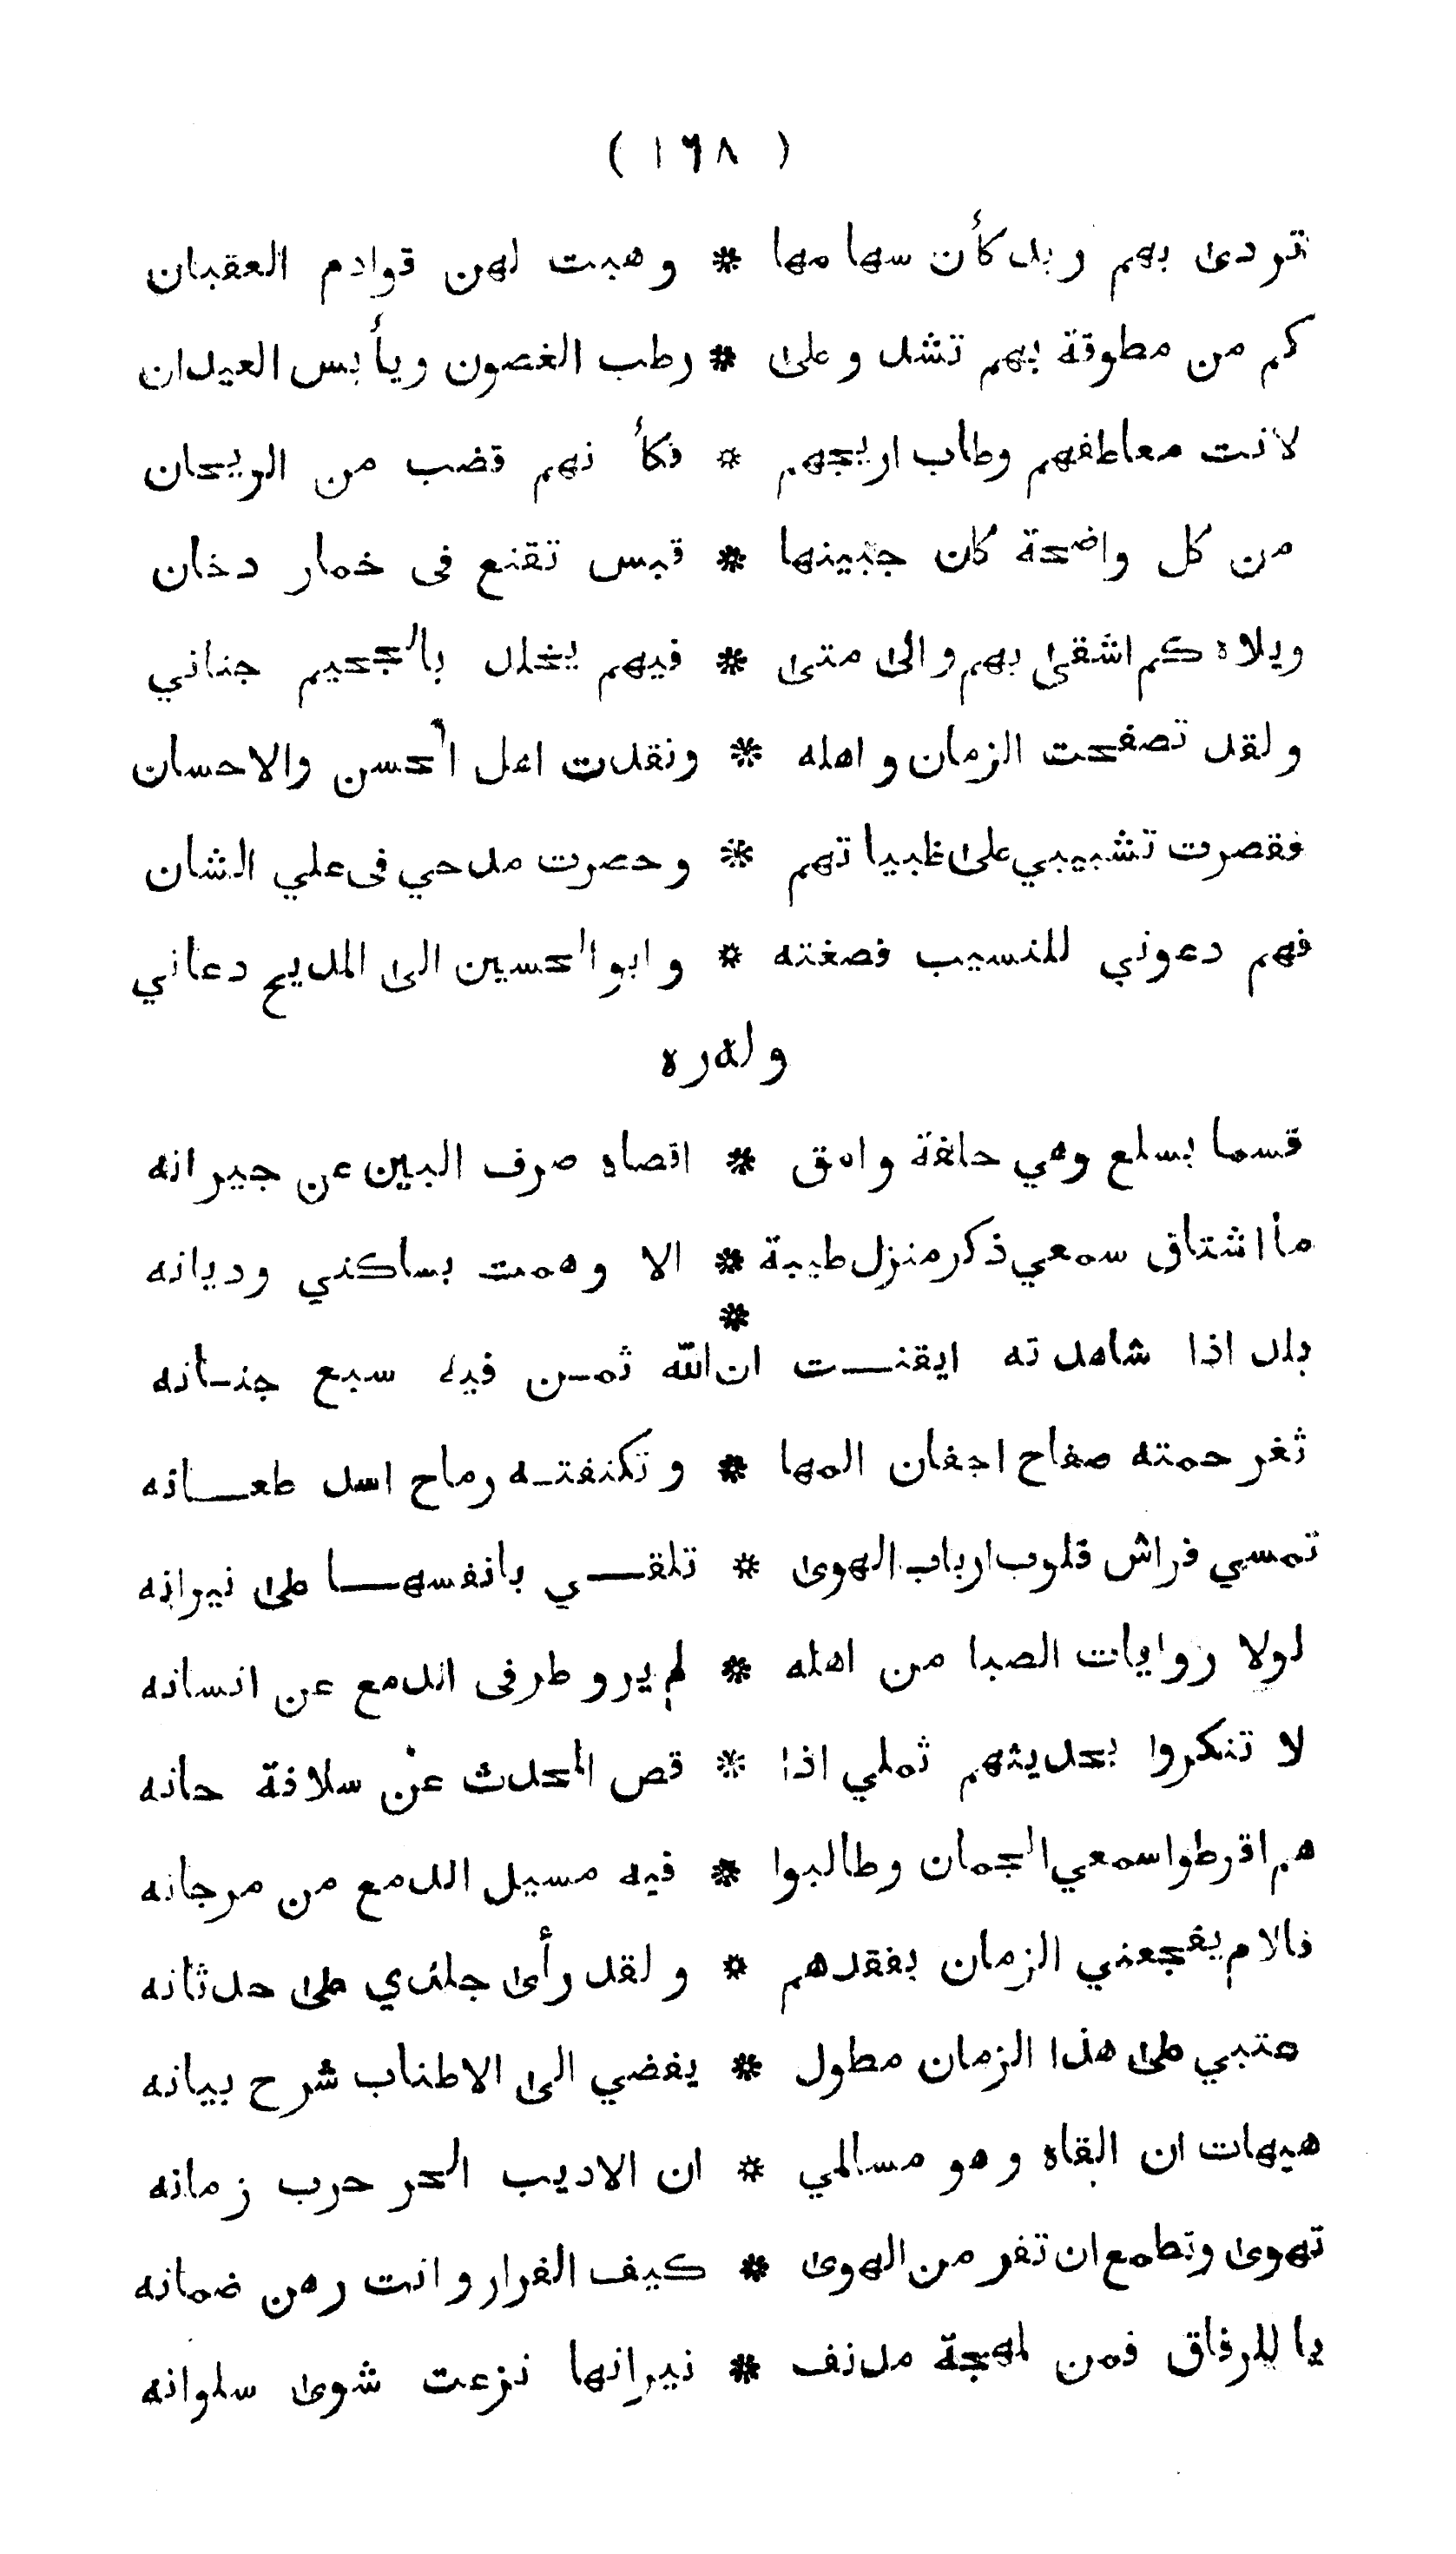 ( ١٦٨ )
تردى بهم ربد كأن سهامها * وهبت لهن قوادم العقبان
كم من مطوقة بهم تشد وعلى * رطب الغصون ويأبس العيدان
لانت معاطفهم وطاب اريجهم * فكأنهم قضب من الريحان
من كل واضحة كان جبينها * قبس تقنع فى خمار دخان
ويلاه كم اشقى بهم والى متى * فيهم يخلد بالجحيم جناني
ولقد تصفحت الزمان واهله * ونقدت اهل الحسن والاحسان
فقصرت تشبيبي على ظبياتهم * وحصرت مدحي فى علي الشان
فهم دعوني للنسيب فصغته * وابوالحسين الى المديح دعاني
وله ره
قسما بسلع وهي حلفة وامق * اقصاه صرف البين عن جيرانه
ما اشتاق سمعي ذكر منزل طيبة * الا وهمت بساكني وديانه
بلد اذا شاهدته ايقنت ان * الله ثمن فيه سبع جنانه
ثغر حمته صفاح اجفان المها * وتكنفته رماح اسد طعانه
تمسي فراش قلوب ارباب الهوى * تلقي بانفسها على نيرانه
لولا روايات الصبا من اهله * لم يرو طرفى الدمع عن انسانه
لا تنكروا بحديثهم ثملي اذا * قص المحدث عن سلافة حانه
هم اقرطوا سمعي الجمان وطالبوا * فيه مسيل الدمع من مرجانه
فالام يفجعني الزمان بفقدهم * ولقد رأى جلدي على حدثانه
عتبي على هذا الزمان مطول * يفضي الى الاطناب شرح بيانه
هيهات ان القاه وهو مسالمي * ان الاديب الحر حرب زمانه
تهوى وتطمع ان تفر من الهوى * كيف الفرار وانت رهن ضمانه
يا للرفاق فمن لمهجة مدنف * نيرانها نزعت شوى سلوانه